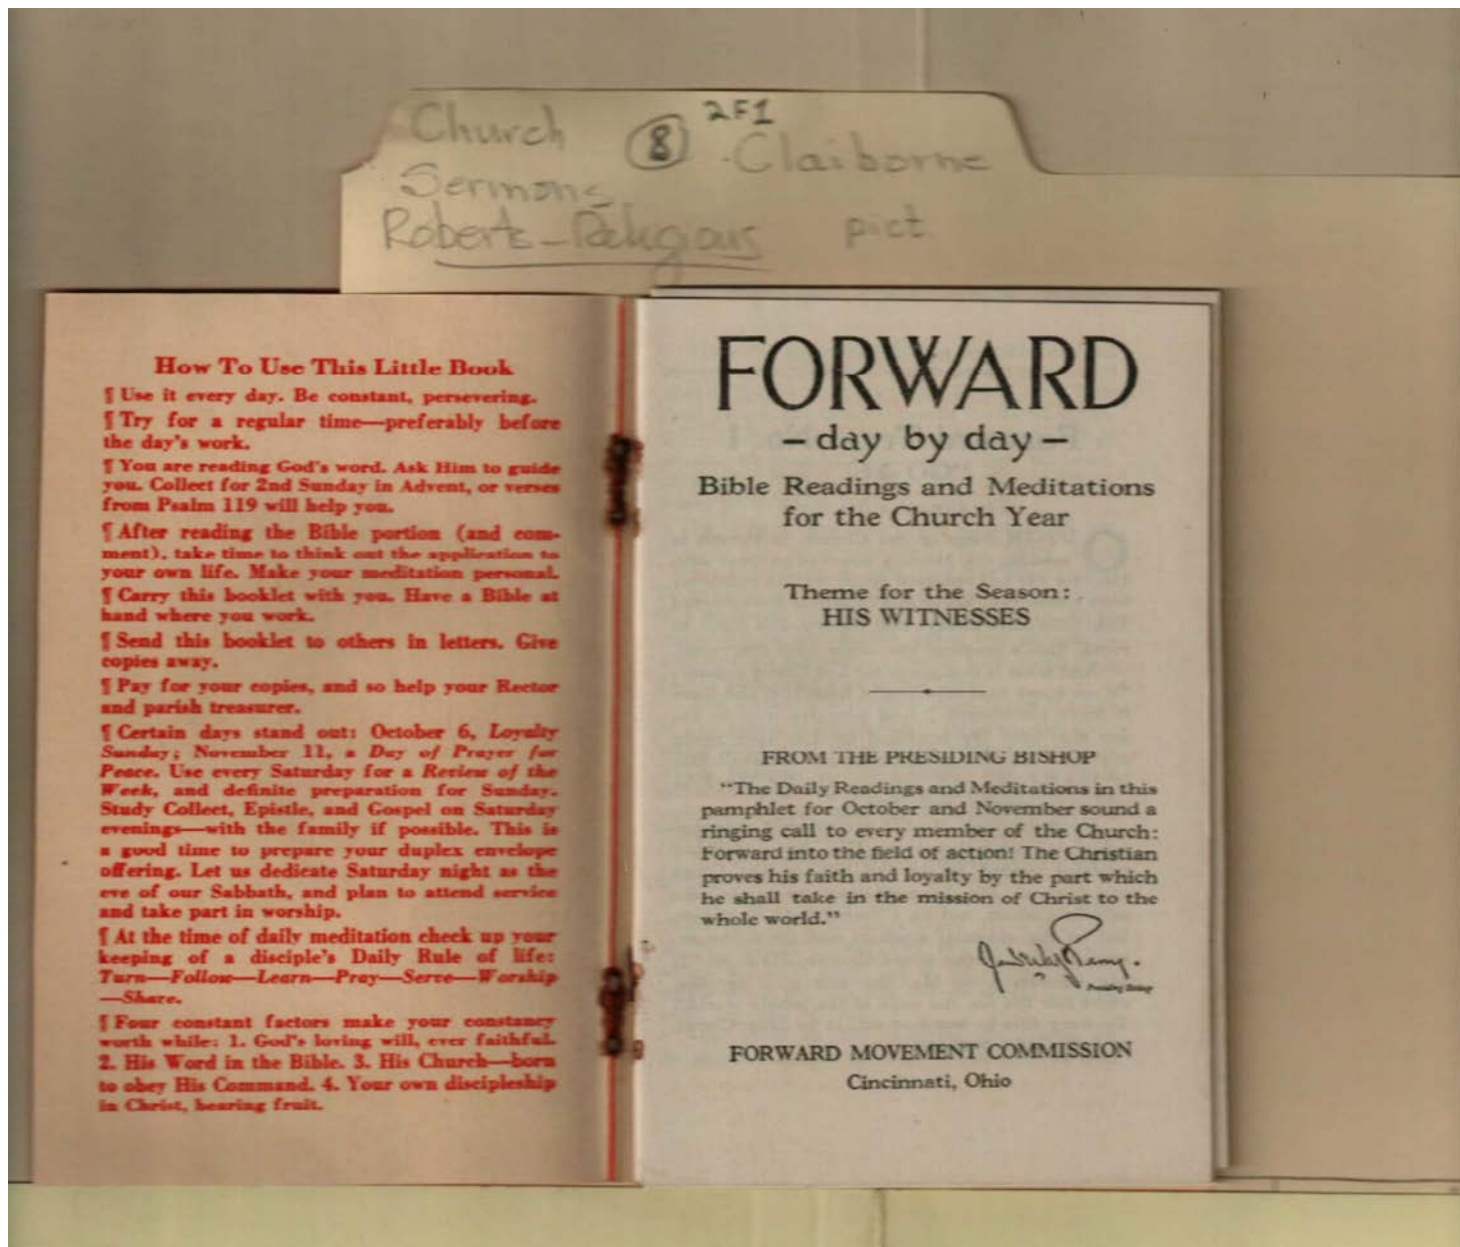 Church ⑧ 2F1 Claiborne
Sermons
Roberts-Religious pict
How To Use This Little Book
¶ Use it every day. Be constant, persevering.
¶ Try for a regular time—preferably before
the day's work.
¶ You are reading God's word. Ask Him to guide
you. Collect for 2nd Sunday in Advent, or verses
from Psalm 119 will help you.
¶ After reading the Bible portion (and com-
ment), take time to think out the application to
your own life. Make your meditation personal.
¶ Carry this booklet with you. Have a Bible at
hand where you work.
¶ Send this booklet to others in letters. Give
copies away.
¶ Pay for your copies, and so help your Rector
and parish treasurer.
¶ Certain days stand out: October 6, Loyalty
Sunday; November 11, a Day of Prayer for
Peace. Use every Saturday for a Review of the
Week, and definite preparation for Sunday.
Study Collect, Epistle, and Gospel on Saturday
evenings—with the family if possible. This is
a good time to prepare your duplex envelope
offering. Let us dedicate Saturday night as the
eve of our Sabbath, and plan to attend service
and take part in worship.
¶ At the time of daily meditation check up your
keeping of a disciple's Daily Rule of life:
Turn—Follow—Learn—Pray—Serve—Worship
—Share.
¶ Four constant factors make your constancy
worth while: 1. God's loving will, ever faithful.
2. His Word in the Bible. 3. His Church—born
to obey His Command. 4. Your own discipleship
in Christ, bearing fruit.
FORWARD
— day by day —
Bible Readings and Meditations
for the Church Year
Theme for the Season:
HIS WITNESSES
FROM THE PRESIDING BISHOP
"The Daily Readings and Meditations in this
pamphlet for October and November sound a
ringing call to every member of the Church:
Forward into the field of action! The Christian
proves his faith and loyalty by the part which
he shall take in the mission of Christ to the
whole world."
Presiding Bishop
FORWARD MOVEMENT COMMISSION
Cincinnati, Ohio